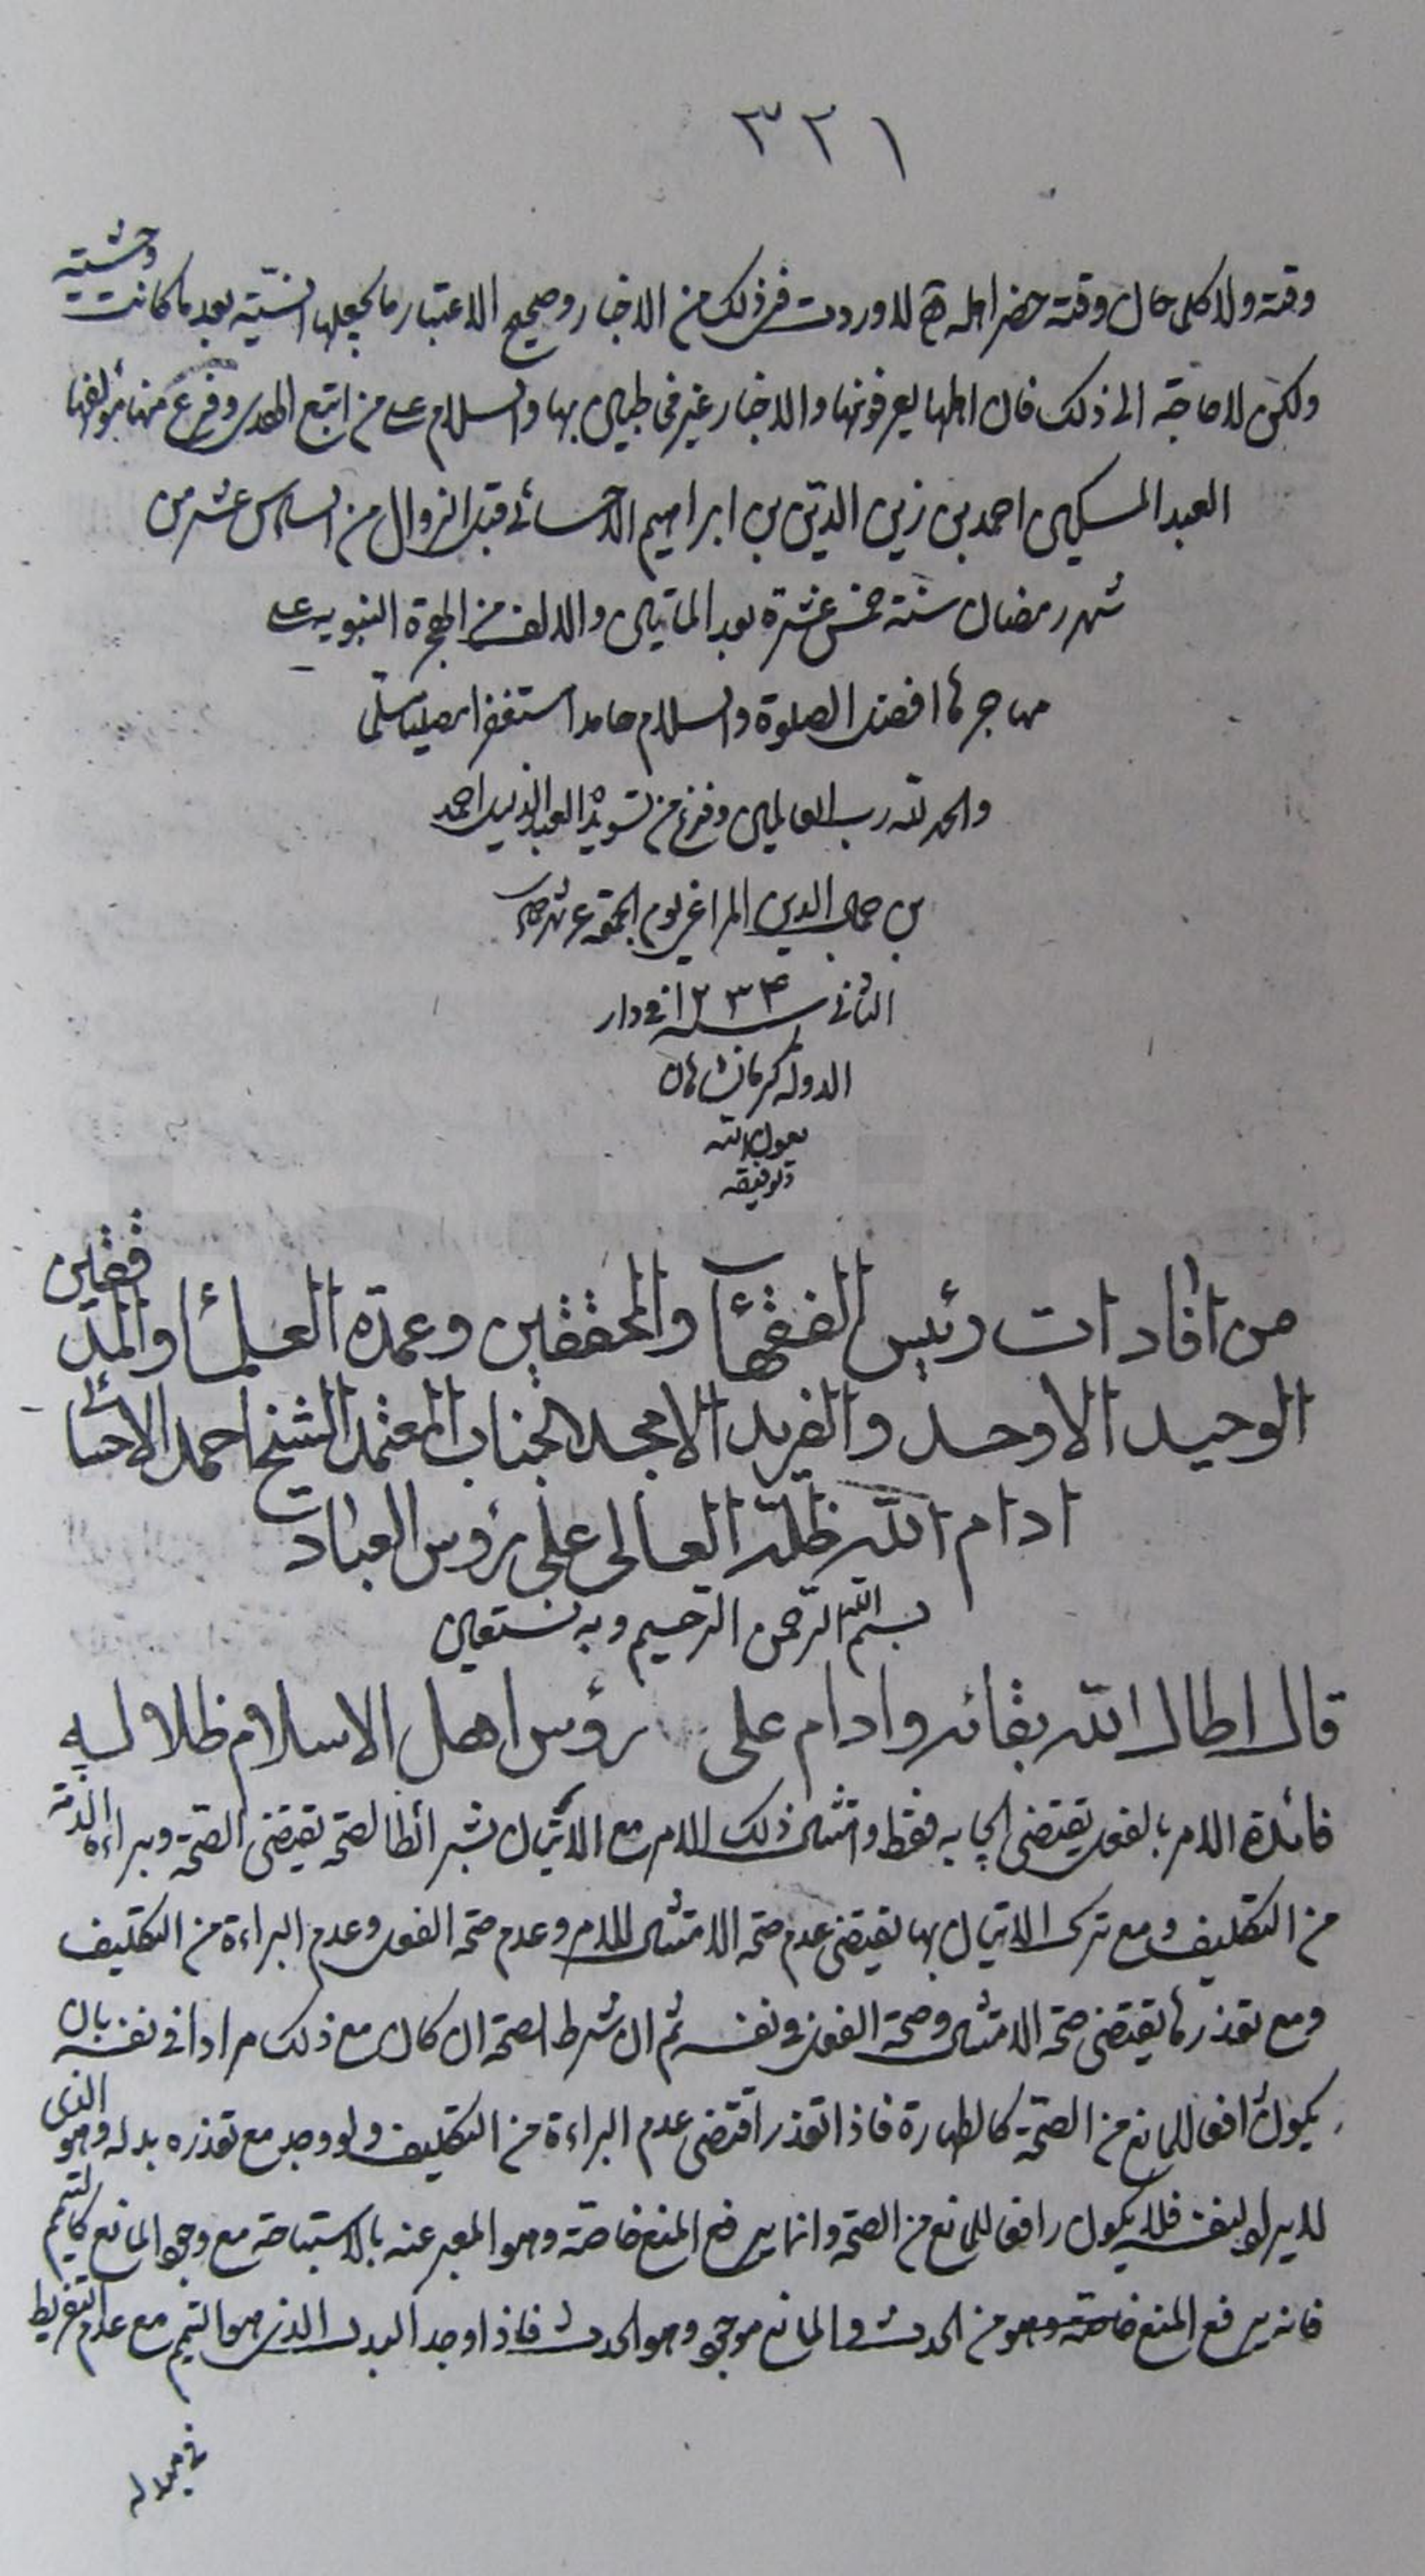 ٣٢١
وقته ولا كل حال وقته حضر اهله لاوردت في ذلك من الاخبار وصحيح الاعتبار ما يجعلها انسيّة بعد ما كانت وحشية
ولكن لا حاجة الى ذلك فان اهلها يعرفونها والاخبار غير مخاطبين بها والسلام على من اتبع الهدى وفرغ منها مؤلفها
العبد المسكين احمد بن زين الدين بن ابراهيم الاحسائي قبل الزوال من السادس عشر من
شهر رمضان سنة خمس عشرة بعد الماتين والالف من الهجرة النبوية على
مهاجرها افضل الصلوة والسلام حامدا مستغفرا مصليا مسلما
والحمد لله رب العالمين وفرغ من تسويده العبد الذليل احمد
بن جمال الدين المراغي يوم الجمعة شهر
الثاني سنة ١٢٣٤ في دار
الدولة كرمانشاهان
بعون الله
وتوفيقه
من افادات رئيس الفقهآء والمحققين وعمدة العلمآء والمدققين
الوحيد الاوحد والفريد الامجد الجناب المعتمد الشيخ احمد الاحسائي
ادام الله ظله العالى على رؤس العباد
بسم الله الرحمن الرحيم وبه نستعين
قال اطال الله بقائه وادام على رؤس اهل الاسلام ظلاله
فائدة الامر بالفعل يقتضى ايجابه فقط وامتثال ذلك الامر مع الاتيان بشرائط الصحة يقتضى الصحة وبراءة الذمة
من التكليف ومع ترك الاتيان بها يقتضى عدم صحة الامتثال للامر وعدم صحة الفعل وعدم البراءة من التكليف
ومع تعذرها يقتضى صحة الامتثال وصحة الفعل في نفسه ثم ان شرط الصحة ان كان مع ذلك مرادا في نفسه بان
يكون رافعا للمانع من الصحة كالطهارة فاذا تعذر اقتضى عدم البراءة من التكليف ولو وجد مع تعذره بدله وهو الذى
لا يراد لنفسه فلا يكون رافعا للمانع من الصحة وانما يرفع المنع خاصة وهو المعبر عنه بالاستباحة مع وجود المانع كالتيمم
فانه يرفع المنع خاصة وهو من الحدث والمانع موجود وهو الحدث فاذا وجد البدل الذى هو التيمم مع عدم التفريط